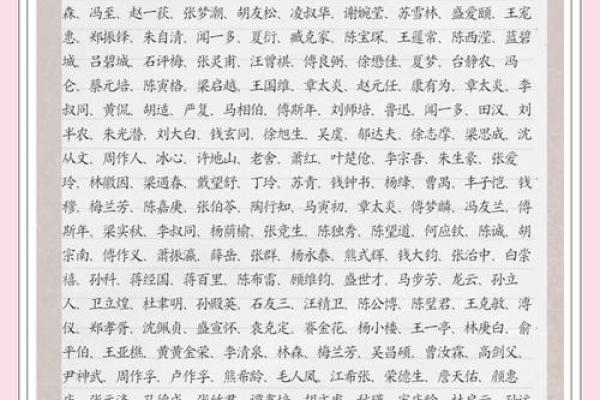 森、冯至、赵一荻、张梦潮、胡友松、凌叔华、谢婉莹、苏雪林、盛爱颐、王宠
惠、郑振铎、朱自清、闻一多、夏衍、臧克家、陈宝琛、王莲常、陈西滢、蓝碧
城、吕碧城、石评梅、张灵甫、汪曾祺、傅良弼、徐懋佳、夏梦、台静农、冯
仑、蔡元培、陈寅格、梁启越、王国维、章太炎、赵元任、康有为、章太炎、李
叔同、黄侃、胡适、严复、马相伯、傅斯年、刘师培、鲁迅、闻一多、田汉、刘
半农、朱光潜、刘大白、钱玄同、徐旭生、吴虞、郁达夫、徐志摩、梁思成、沈
从文、周作人、冰心、许地山、老舍、萧红、叶楚伦、李宗吾、朱生豪、张爱
玲、林徽因、梁遇春、戴望舒、丁玲、苏青、钱钟书、杨绛、曹禺、丰子恺、钱
穆、梅兰芳、陈嘉庚、张伯苓、陶行知、马寅初、章太炎、傅梦麟、冯友兰、傅
斯年、梁实秋、李叔同、杨荫榆、张竞生、陈独秀、陈望道、何应钦、陈诚、胡
宗南、傅作义、萧振瀛、薛岳、张群、杨永泰、熊式辉、钱大钧、张治中、白崇
禧、孙科、蒋经国、蒋百里、陈布雷、顾维钧、盛世才、马步芳、龙云、孙立
人、卫立煌、杜聿明、孙殿英、石友三、汪精卫、陈公博、陈璧君、王克敏、溥
仪、郑孝胥、沈佩贞、盛宣怀、袁克定、赛金花、杨小楼、王一亭、林庚白、俞
平伯、王亚樵、黄黄金荣、李清泉、林森、梅兰芳、吴昌硕、曹汝霖、高剑父、
尹神武、周作孚、卢作孚、熊希龄、毛人凤、江希张、荣德生、詹天佑、颜惠